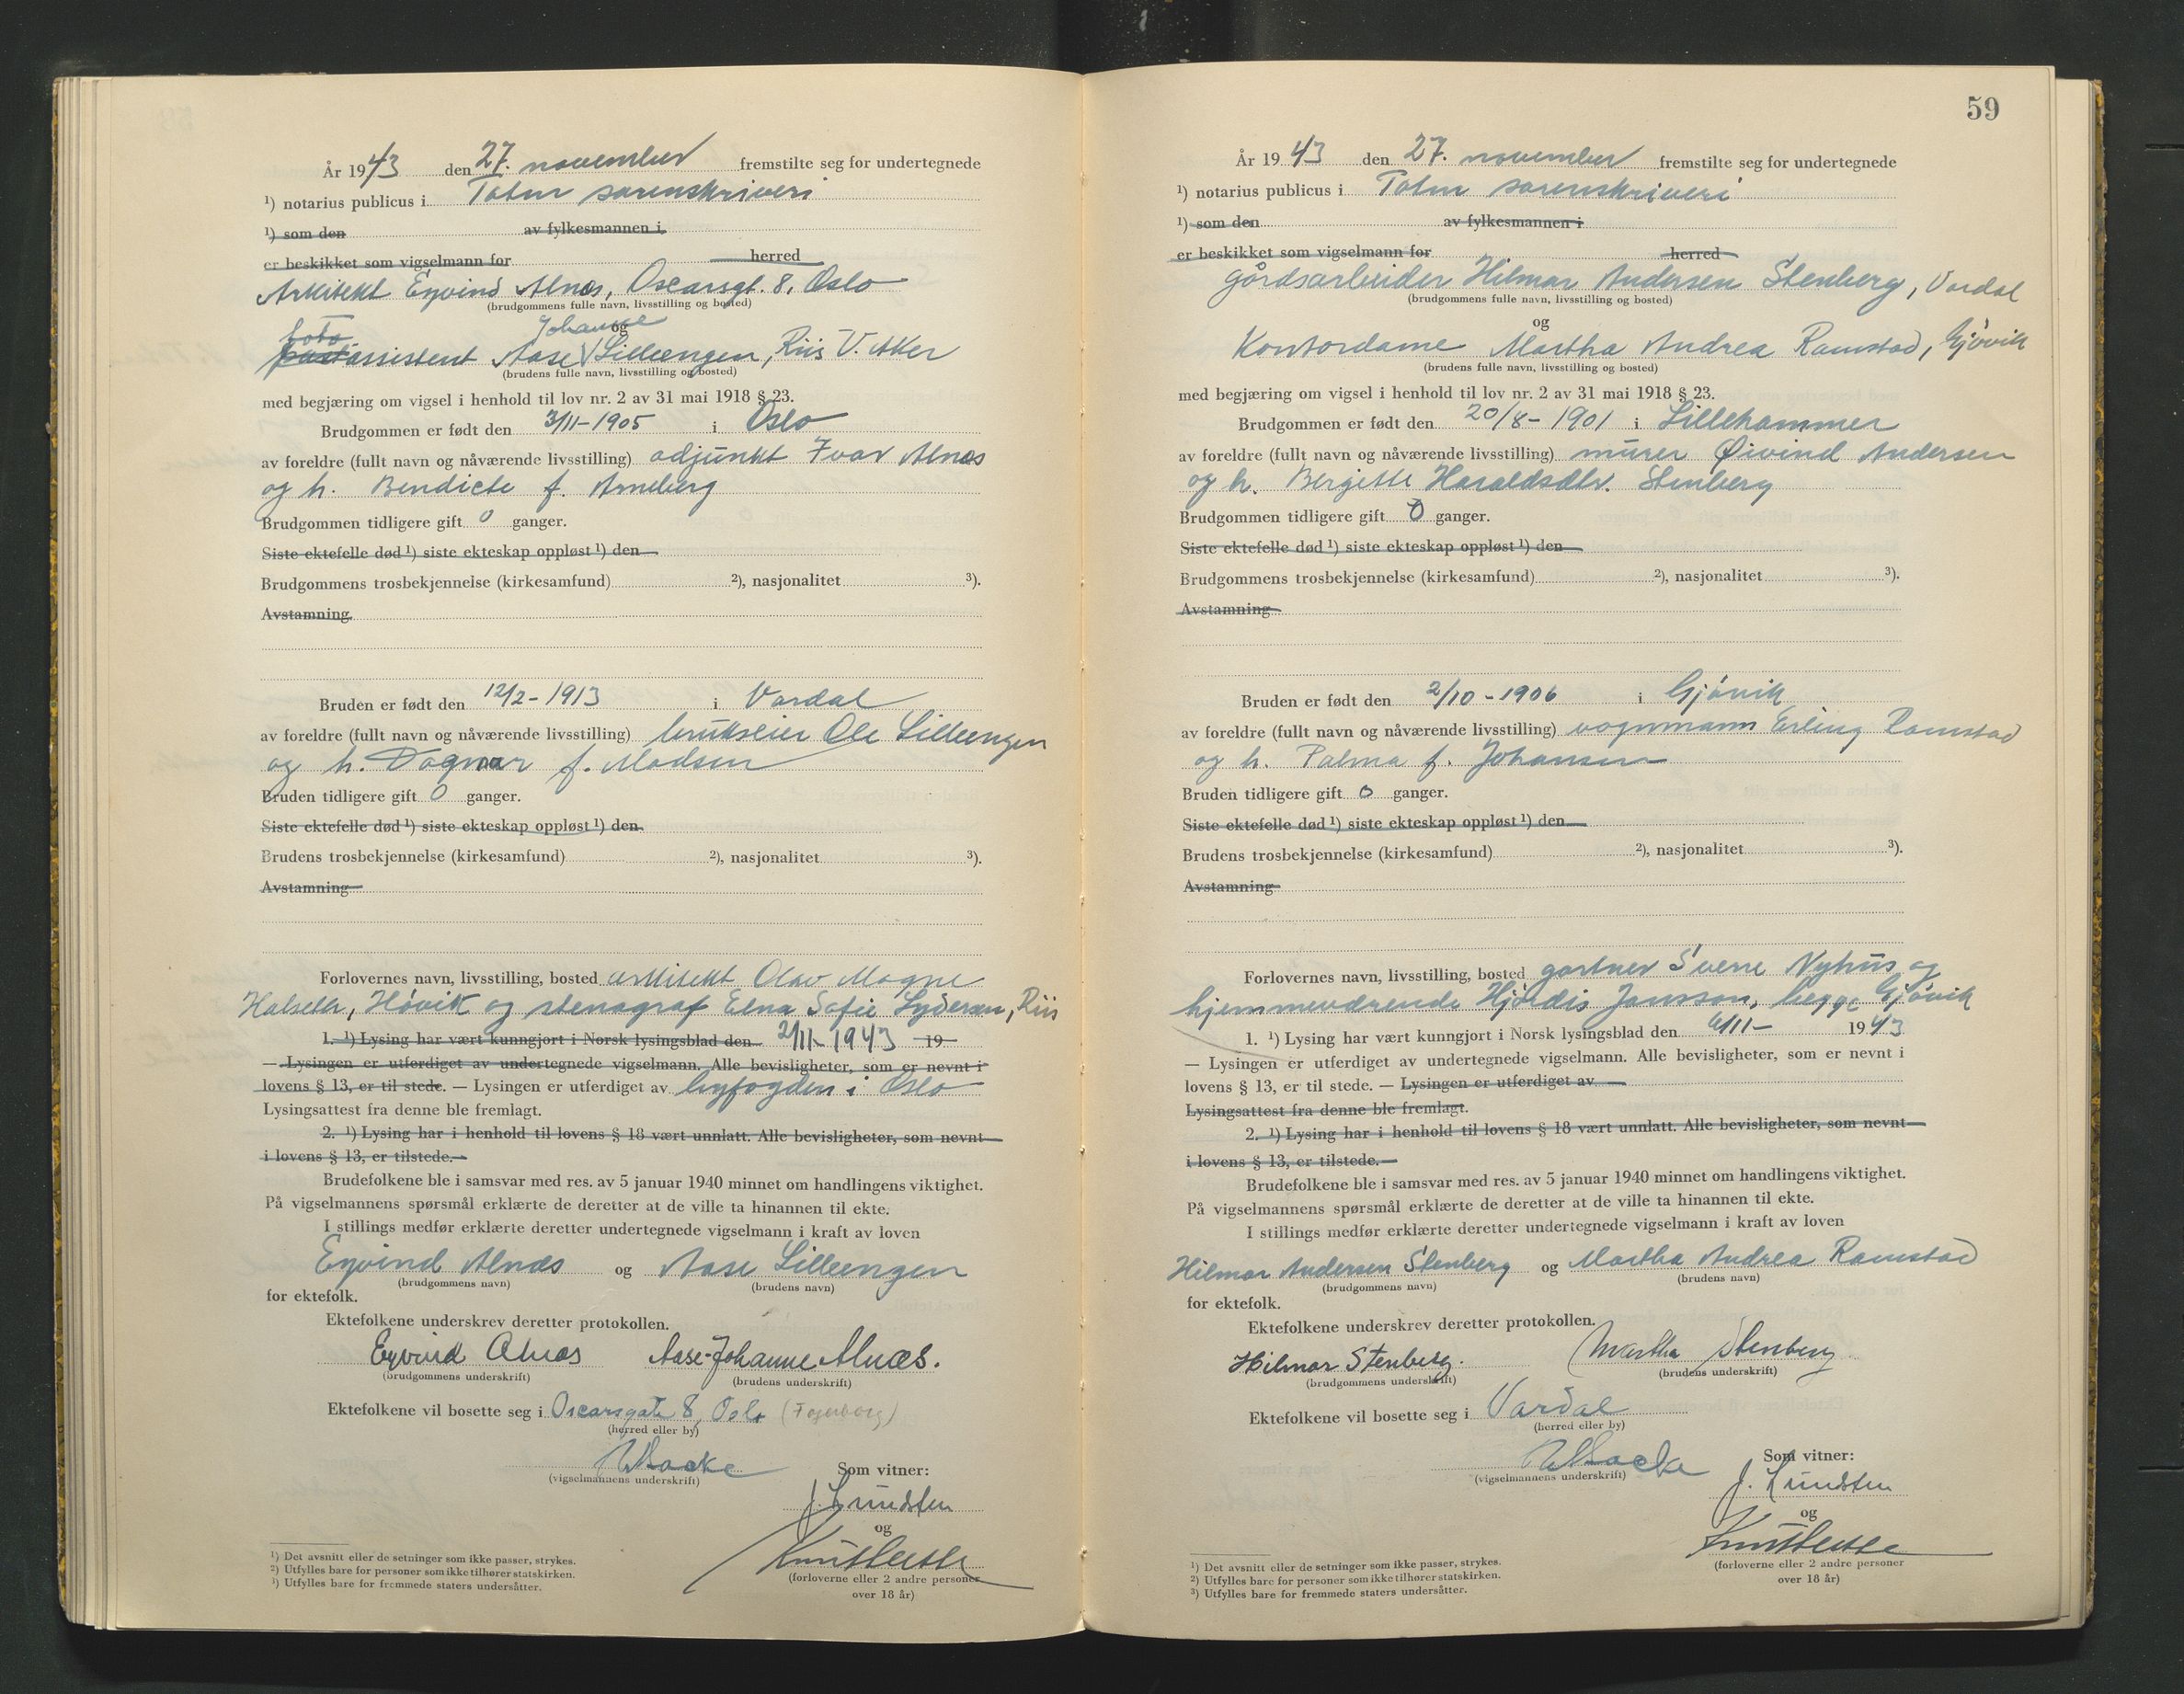 År 1943 den 27. november fremstilte seg for undertegnede
¹) notarius publicus i Toten sorenskriveri
¹) som den av fylkesmannen i
er beskikket som vigselmann for herred
Arkitekt Eyvind Alnæs, Oscarsgt. 8, Oslo
(brudgommens fulle navn, livsstilling og bosted)
foto Johanne
og
postassistent Aase Lilleengen, Riis V. Aker
(brudens fulle navn, livsstilling og bosted)
med begjæring om vigsel i henhold til lov nr. 2 av 31 mai 1918 § 23.
Brudgommen er født den 3/11-1905 i Oslo
av foreldre (fullt navn og nåværende livsstilling) adjunkt Ivar Alnæs
og h. Bendicte f. Arneberg
Brudgommen tidligere gift 0 ganger.
Siste ektefelle død ¹) siste ekteskap oppløst ¹) den
Brudgommens trosbekjennelse (kirkesamfund) ²), nasjonalitet ³).
Avstamning
Bruden er født den 12/2-1913 i Vardal
av foreldre (fullt navn og nåværende livsstilling) brukseier Ole Lilleengen
og h. Dagmar f. Madsen
Bruden tidligere gift 0 ganger.
Siste ektefelle død ¹) siste ekteskap oppløst ¹) den
Brudens trosbekjennelse (kirkesamfund) ²), nasjonalitet ³).
Avstamning
Forlovernes navn, livsstilling, bosted arkitekt Olav Magne
Halseth, Høvik og stenograf Elna Sofie Lydersen, Riis
1. ¹) Lysing har vært kunngjort i Norsk lysingsblad den 2/11-1943 19
— Lysingen er utferdiget av undertegnede vigselmann. Alle bevisligheter, som er nevnt i
lovens § 13, er til stede. — Lysingen er utferdiget av byfogden i Oslo
Lysingsattest fra denne ble fremlagt.
2. ¹) Lysing har i henhold til lovens § 18 vært unnlatt. Alle bevisligheter, som nevnt
i lovens § 13, er tilstede.
Brudefolkene ble i samsvar med res. av 5 januar 1940 minnet om handlingens viktighet.
På vigselmannens spørsmål erklærte de deretter at de ville ta hinannen til ekte.
I stillings medfør erklærte deretter undertegnede vigselmann i kraft av loven
Eyvind Alnæs og Aase Lilleengen
(brudgommens navn) (brudens navn)
for ektefolk.
Ektefolkene underskrev deretter protokollen.
Eyvind Alnæs Aase-Johanne Alnæs.
(brudgommens underskrift) (brudens underskrift)
Ektefolkene vil bosette seg i Oscarsgate 8, Oslo (Fagerborg)
(herred eller by)
(vigselmannens underskrift) Som vitner:
J. Lundsten
og
(forloverne eller 2 andre personer
over 18 år)
¹) Det avsnitt eller de setninger som ikke passer, strykes.
²) Utfylles bare for personer som ikke tilhører statskirken.
¹) Utfylles bare for fremmede staters undersåtter.
59
År 1943 den 27. november fremstilte seg for undertegnede
¹) notarius publicus i Toten sorenskriveri
¹) som den av fylkesmannen i
er beskikket som vigselmann for herred
gårdsarbeider Hilmar Andersen Stenberg, Vardal
(brudgommens fulle navn, livsstilling og bosted)
og
Kontordame Martha Andrea Ramstad, Gjøvik
(brudens fulle navn, livsstilling og bosted)
med begjæring om vigsel i henhold til lov nr. 2 av 31 mai 1918 § 23.
Brudgommen er født den 20/8-1901 i Lillehammer
av foreldre (fullt navn og nåværende livsstilling) murer Øivind Andersen
og h. Bergitte Haraldsdtr. Stenberg
Brudgommen tidligere gift 0 ganger.
Siste ektefelle død ¹) siste ekteskap oppløst ¹) den
Brudgommens trosbekjennelse (kirkesamfund) ²), nasjonalitet ³).
Avstamning
Bruden er født den 2/10-1906 i Gjøvik
av foreldre (fullt navn og nåværende livsstilling) vognmann Erling Ramstad
og h. Palma f. Johansen
Bruden tidligere gift 0 ganger.
Siste ektefelle død ¹) siste ekteskap oppløst ¹) den
Brudens trosbekjennelse (kirkesamfund) ²), nasjonalitet ³).
Avstamning
Forlovernes navn, livsstilling, bosted gartner Sverre Nyhus og
hjemmeværende Hjørdis Jansson, begge Gjøvik
1. ¹) Lysing har vært kunngjort i Norsk lysingsblad den 6/11- 1943
— Lysingen er utferdiget av undertegnede vigselmann. Alle bevisligheter, som er nevnt i
lovens § 13, er til stede. — Lysingen er utferdiget av
Lysingsattest fra denne ble fremlagt.
2. ¹) Lysing har i henhold til lovens § 18 vært unnlatt. Alle bevisligheter, som nevnt
i lovens § 13, er tilstede.
Brudefolkene ble i samsvar med res. av 5 januar 1940 minnet om handlingens viktighet.
På vigselmannens spørsmål erklærte de deretter at de ville ta hinannen til ekte.
I stillings medfør erklærte deretter undertegnede vigselmann i kraft av loven
Hilmar Andersen Stenberg og Martha Andrea Ramstad
(brudgommens navn) (brudens navn)
for ektefolk.
Ektefolkene underskrev deretter protokollen.
Hilmar Stenberg. Martha Stenberg
(brudgommens underskrift) (brudens underskrift)
Ektefolkene vil bosette seg i Vardal
(herred eller by)
(vigselmannens underskrift) Som vitner:
J. Lundsten
og
(forloverne eller 2 andre personer
over 18 år)
¹) Det avsnitt eller de setninger som ikke passer, strykes.
²) Utfylles bare for personer som ikke tilhører statskirken.
³) Utfylles bare for fremmede staters undersåtter.